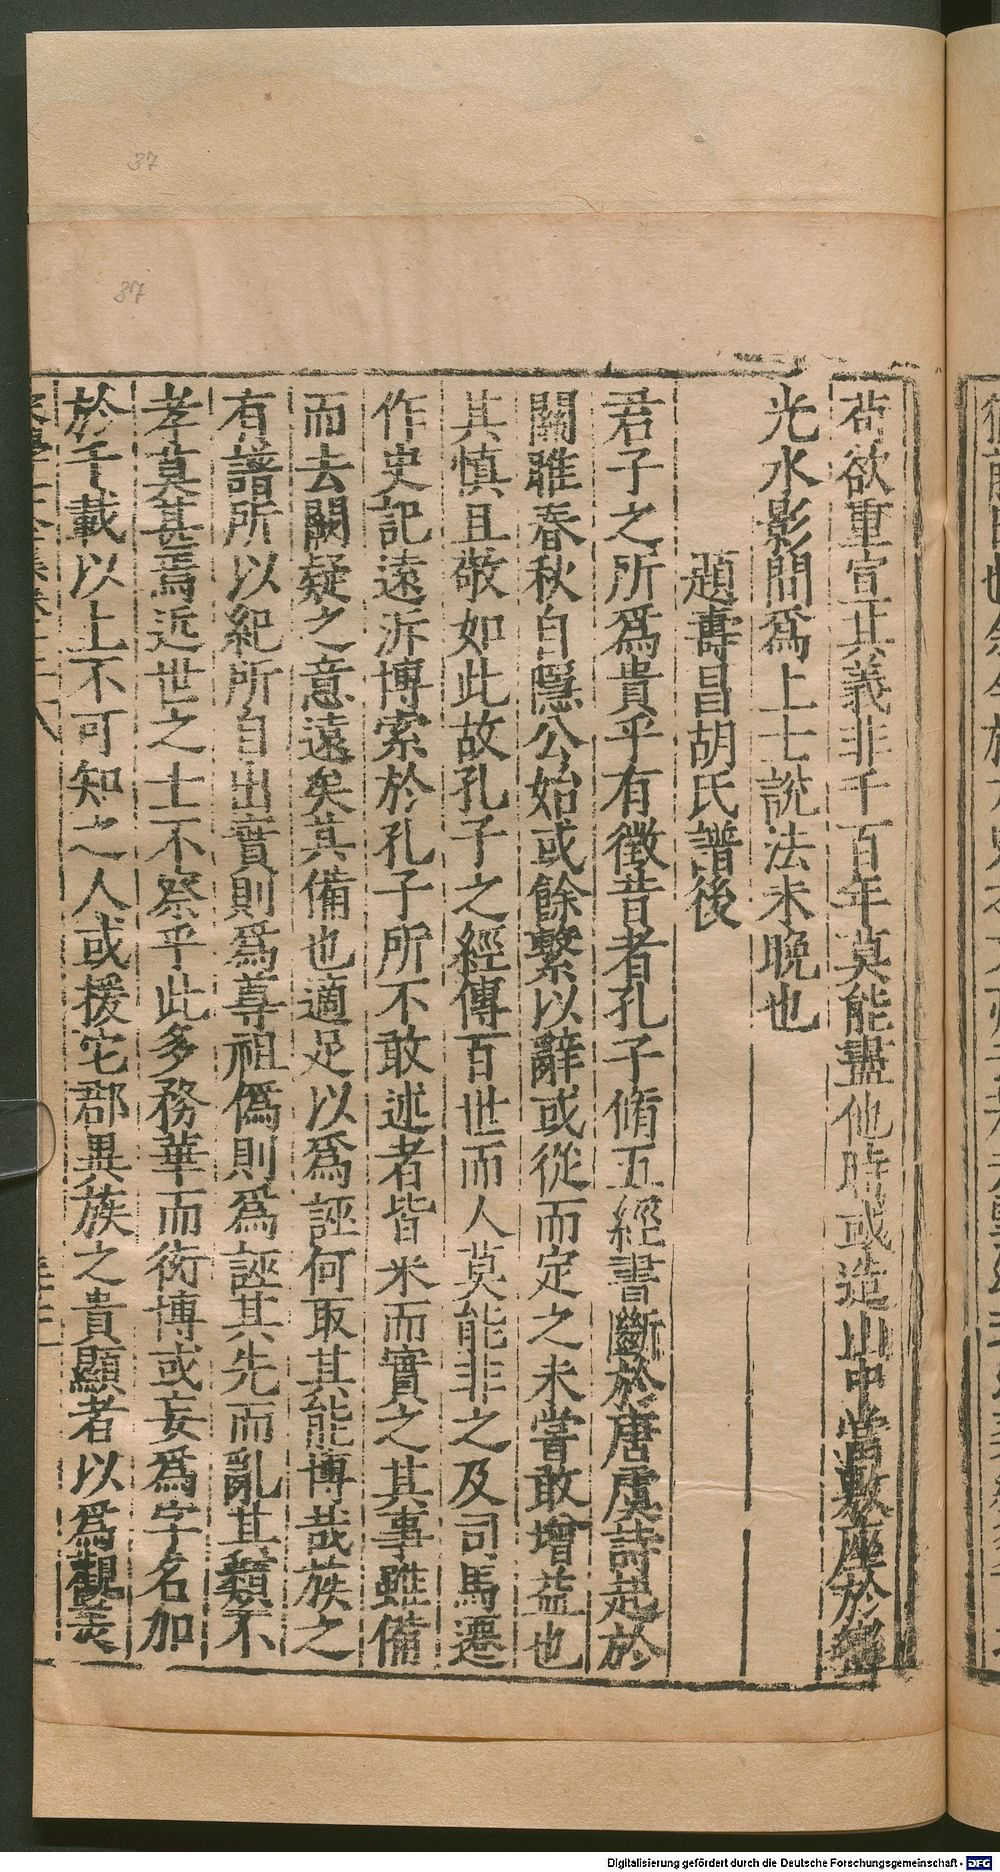 苟欲重宣其義非千百年莫能盡他時或造山中當敷座於巒
光水影間爲上士說法未晚也
題壽昌胡氏譜後
君子之所爲貴乎有徵昔者孔子脩五經書斷於唐虞詩起於
關雎春秋自隱公始或餘繫以辭或從而定之未嘗敢增益也
其慎且敬如此故孔子之經傳百世而人莫能非之及司馬遷
作史記遠泝博索於孔子所不敢述者皆米而實之其事雖備
而去闕疑之意遠矣其備也適足以爲誣何取其能博哉族之
有譜所以紀所自出實則爲尊祖僞則爲誣其先而亂其類不
孝莫甚焉近世之士不察乎此多務華而衒博或妄爲字名加
於千載以上不可知之人或援宅郡異族之貴顯者以爲觀美
37
37
Digitalisierung gefördert durch die Deutsche Forschungsgemeinschaft - DFG